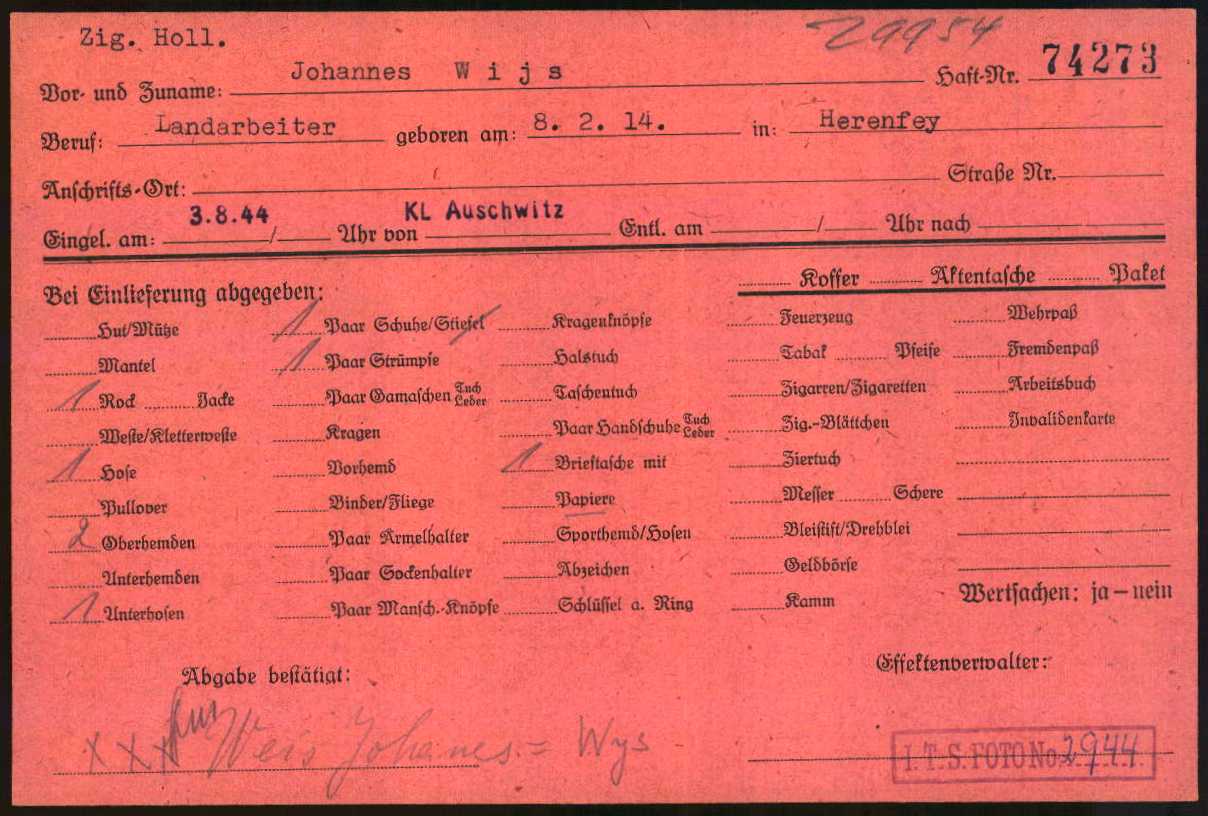 Zig. Holl.
29954
Vor- und Zuname: Johannes Wijs Haft-Nr. 74273
Beruf: Landarbeiter geboren am: 8. 2. 14. in: Herenfey
Anschrifts-Ort: Straße Nr.
Eingel. am: 3.8.44 / Uhr von KL Auschwitz Entl. am / Uhr nach
Bei Einlieferung abgegeben: Koffer Aktentasche Paket
Hut/Mütze 1 Paar Schuhe/Stiefel Kragenknöpfe Feuerzeug Wehrpaß
Mantel 1 Paar Strümpfe Halstuch Tabak Pfeife Fremdenpaß
1 Rock Jacke Paar Gamaschen Tuch Leder Taschentuch Zigarren/Zigaretten Arbeitsbuch
Weste/Kletterweste Kragen Paar Handschuhe Tuch Leder Zig.-Blättchen Invalidenkarte
1 Hose Vorhemd 1 Brieftasche mit Ziertuch
Pullover Binder/Fliege Papiere Messer Schere
2 Oberhemden Paar Ärmelhalter Sporthemd/Hosen Bleistift/Drehblei
Unterhemden Paar Sockenhalter Abzeichen Geldbörse
1 Unterhosen Paar Mansch.-Knöpfe Schlüssel a. Ring Kamm Wertsachen: ja – nein
Abgabe bestätigt: Effektenverwalter:
x x x Weis Johanes = Wys
I.T.S. FOTO No 2944